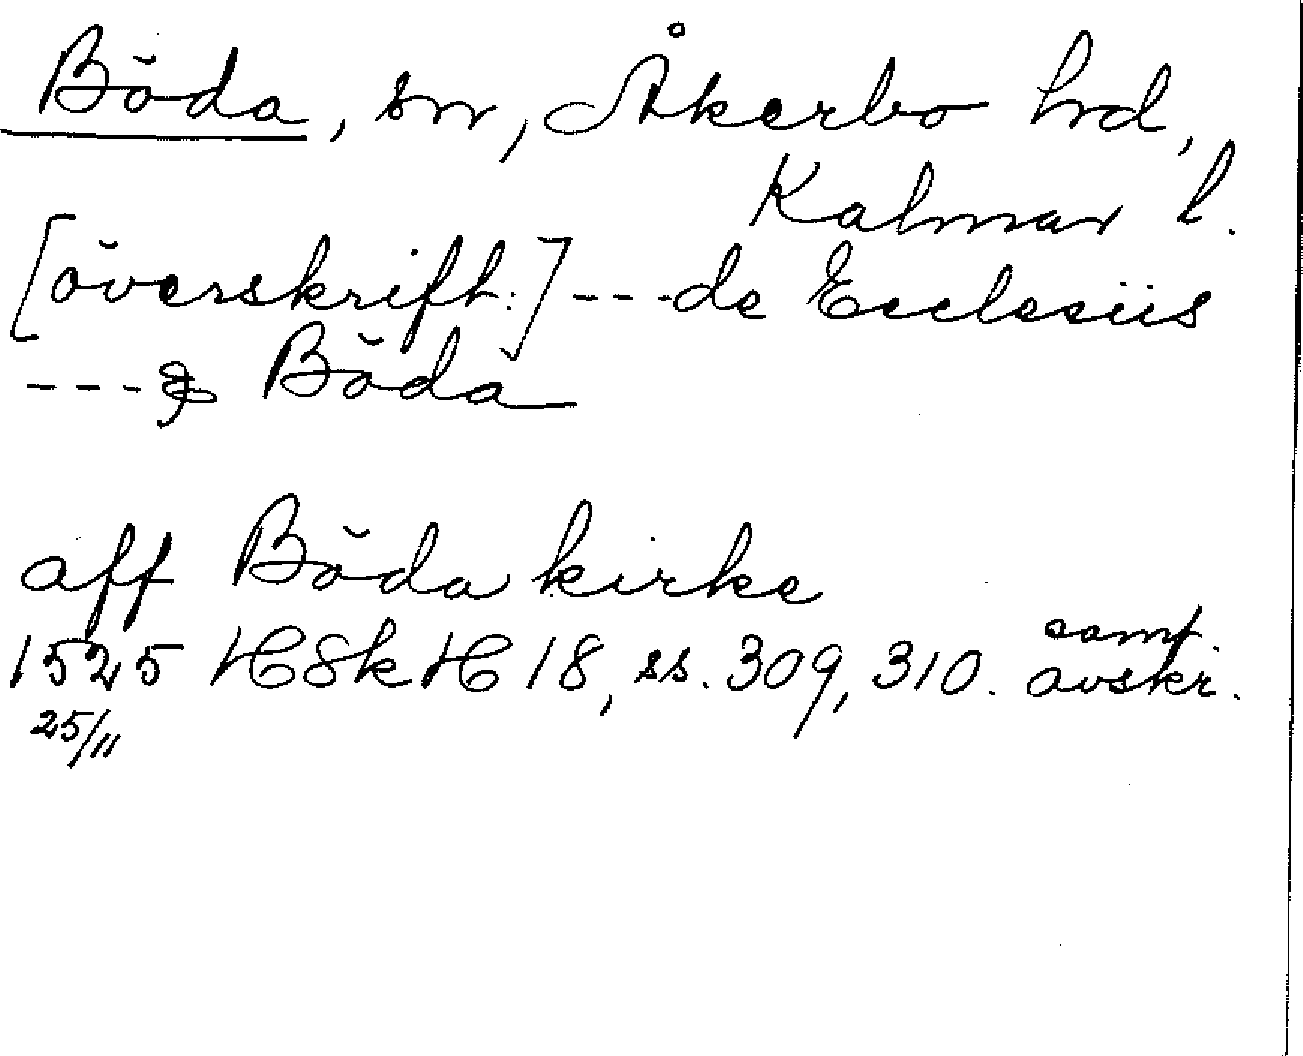 Böda, sn, Åkerbo hd,
Kalmar l.
[överskrift:] --- de Ecclesiis
--- & Böda
aff Böda kirke
1525 HSkH 18, ss. 309, 310. samt. avskr.
25/11